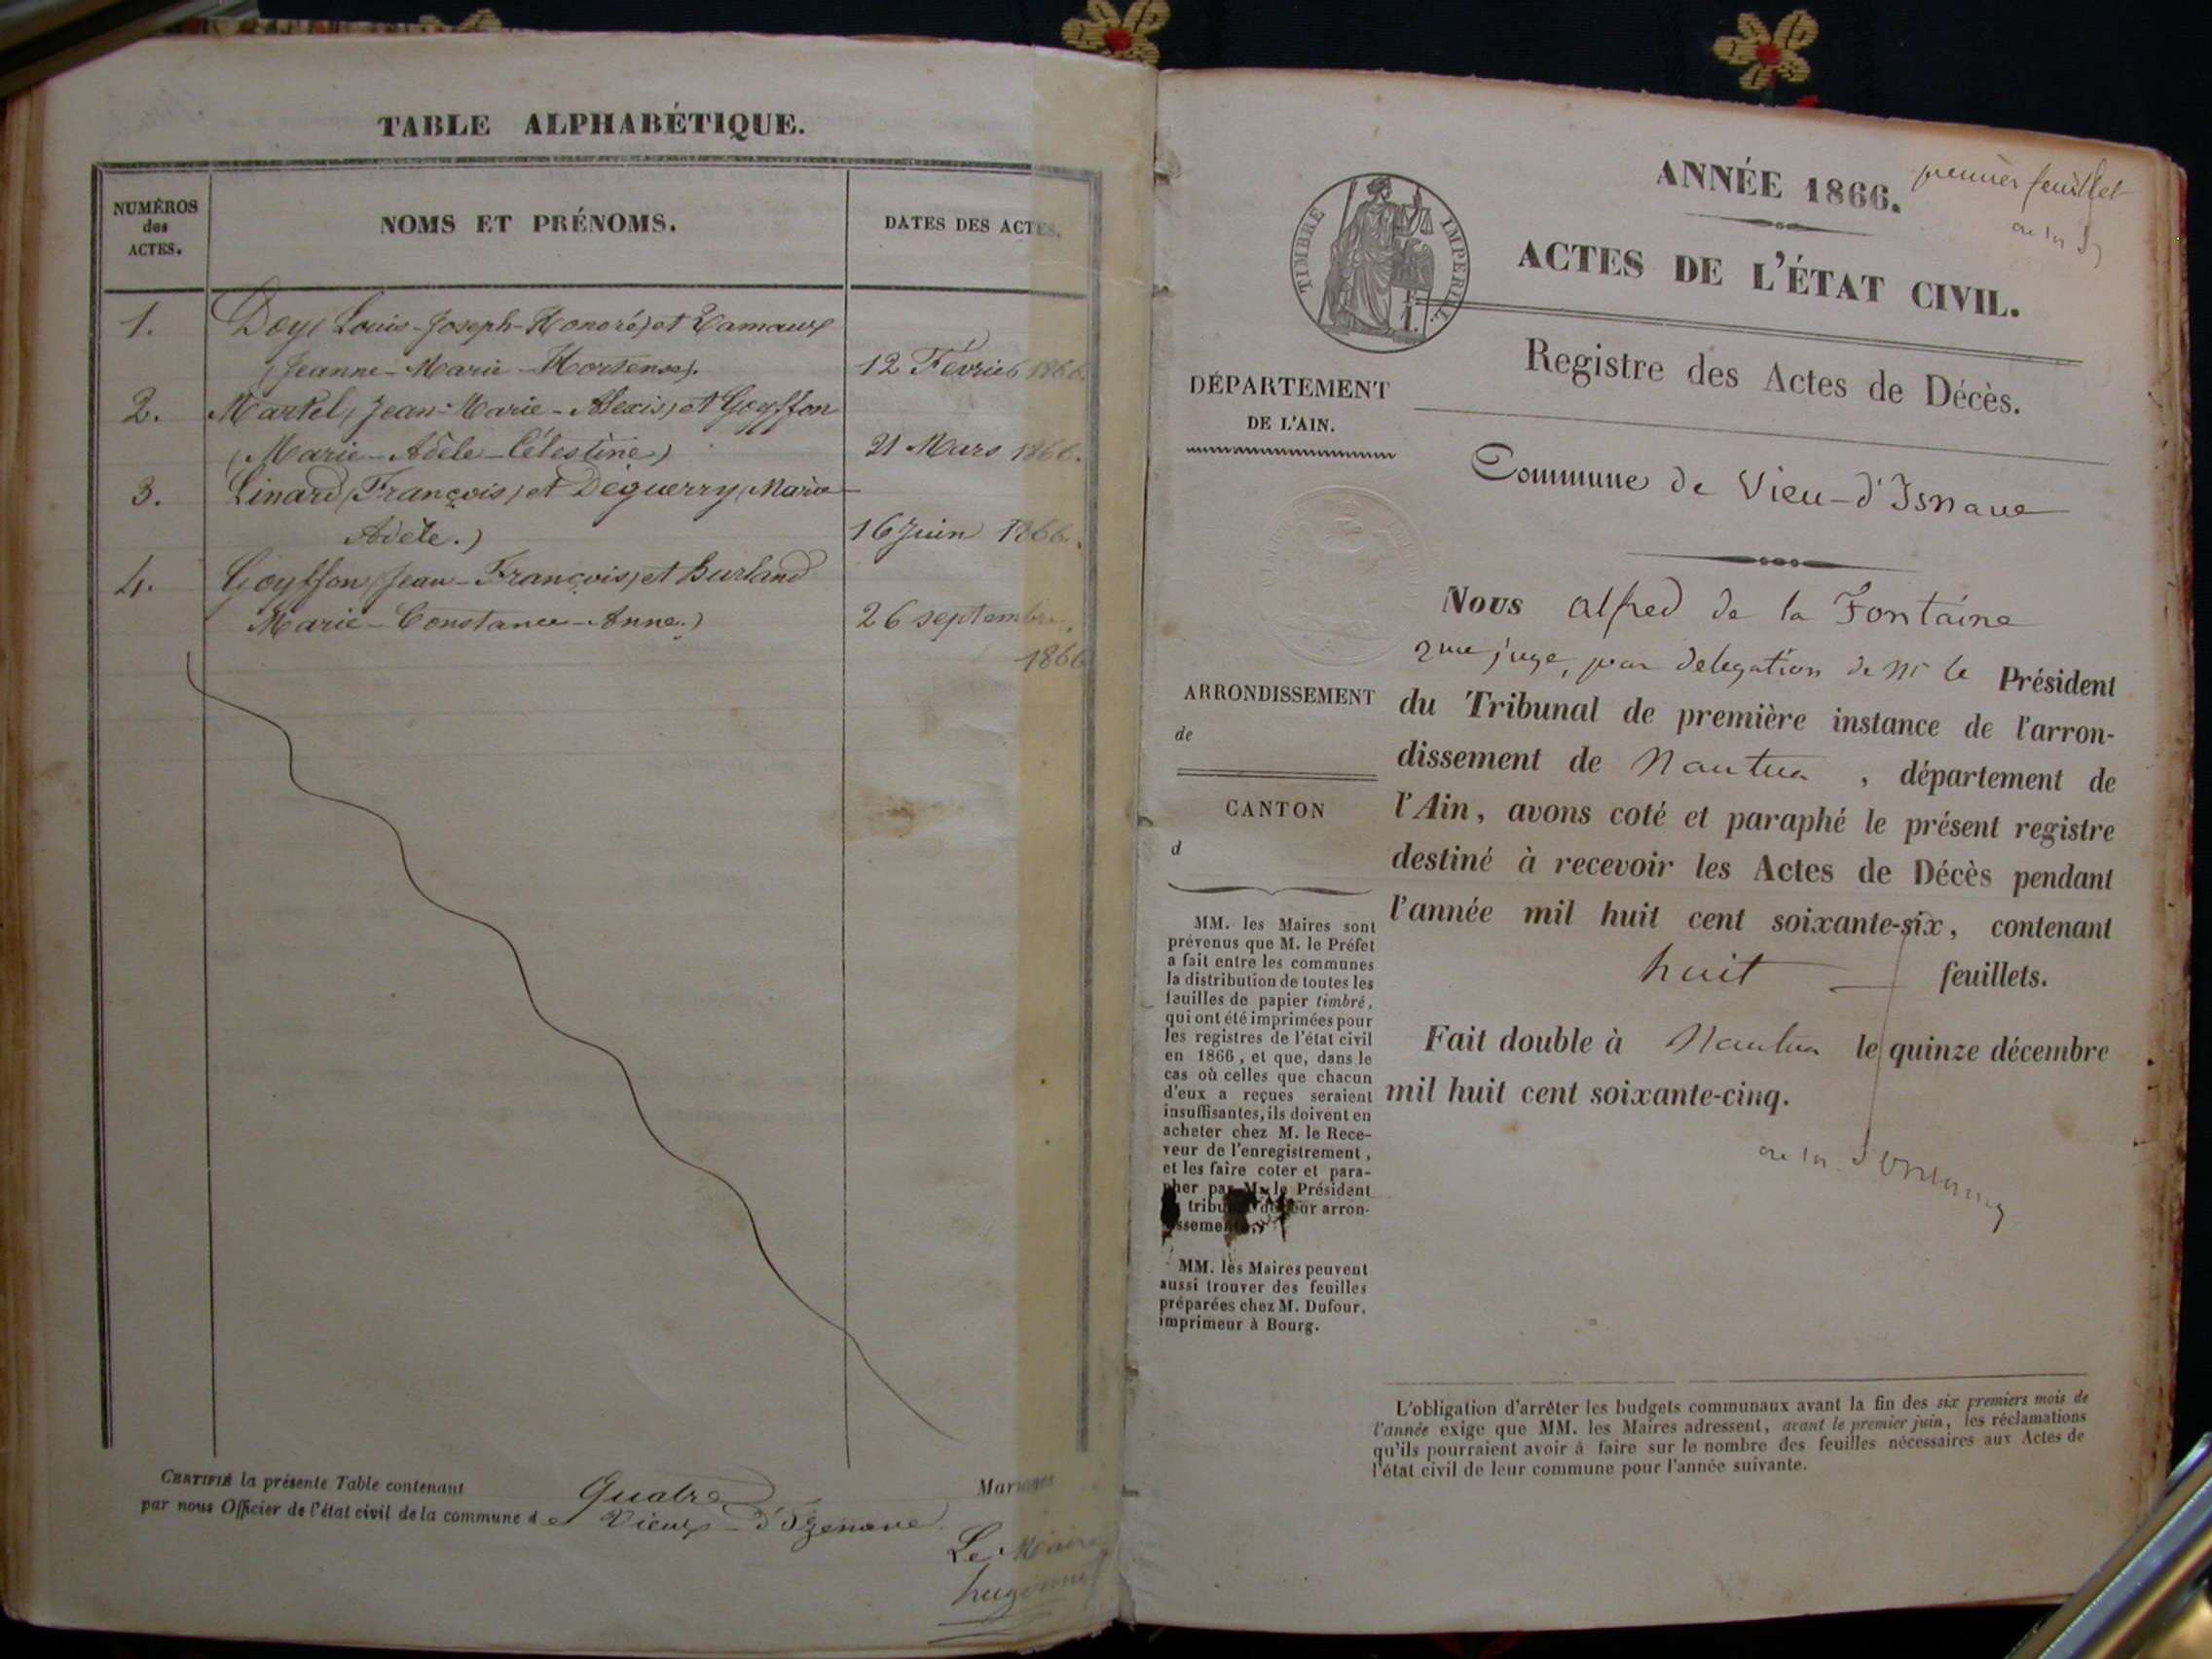 TABLE ALPHABÉTIQUE.
NUMÉROS
des
ACTES.
NOMS ET PRÉNOMS.
DATES DES ACTES.
1. Dey (Louis-Joseph-Honoré) et
(Jeanne-Marie-Hortense). 12 Février 1866.
2. Martel (Jean-Marie-Alexis) et Goyffon
(Marie-Adèle-Célestine) 21 Mars 1866.
3. Linard (François) et Déguerry (Marie-
Adèle.) 16 Juin 1866.
4. Goyffon (Jean-François) et Burland
Marie-Constance-Anne.) 26 septembre
1866
CERTIFIÉ la présente Table contenant Quatre Mariages
par nous Officier de l'état civil de la commune de Vieux-d'Izenave
Le Maire
hugonnet
premier feuillet
de la
ANNÉE 1866.
TIMBRE IMPÉRIAL
ACTES DE L'ÉTAT CIVIL.
Registre des Actes de Décès.
DÉPARTEMENT
DE L'AIN.
Commune de Vieu-d'Isnave
ARRONDISSEMENT
de
CANTON
d
Nous alfred de la Fontaine
2me juge, par delegation de Mr le Président
du Tribunal de première instance de l'arron-
dissement de Nantua, département de
l'Ain, avons coté et paraphé le présent registre
destiné à recevoir les Actes de Décès pendant
l'année mil huit cent soixante-six, contenant
huit feuillets.
Fait double à Nantua le quinze décembre
mil huit cent soixante-cinq.
de la Fontaine
MM. les Maires sont
prévenus que M. le Préfet
a fait entre les communes
la distribution de toutes les
feuilles de papier timbré,
qui ont été imprimées pour
les registres de l'état civil
en 1866, et que, dans le
cas où celles que chacun
d'eux a reçues seraient
insuffisantes, ils doivent en
acheter chez M. le Rece-
veur de l'enregistrement,
et les faire coter et para-
pher par M. le Président
tribunal de leur arron-
dissement.
MM. les Maires peuvent
aussi trouver des feuilles
préparées chez M. Dufour,
imprimeur à Bourg.
L'obligation d'arrêter les budgets communaux avant la fin des six premiers mois de
l'année exige que MM. les Maires adressent, avant le premier juin, les réclamations
qu'ils pourraient avoir à faire sur le nombre des feuilles nécessaires aux Actes de
l'état civil de leur commune pour l'année suivante.